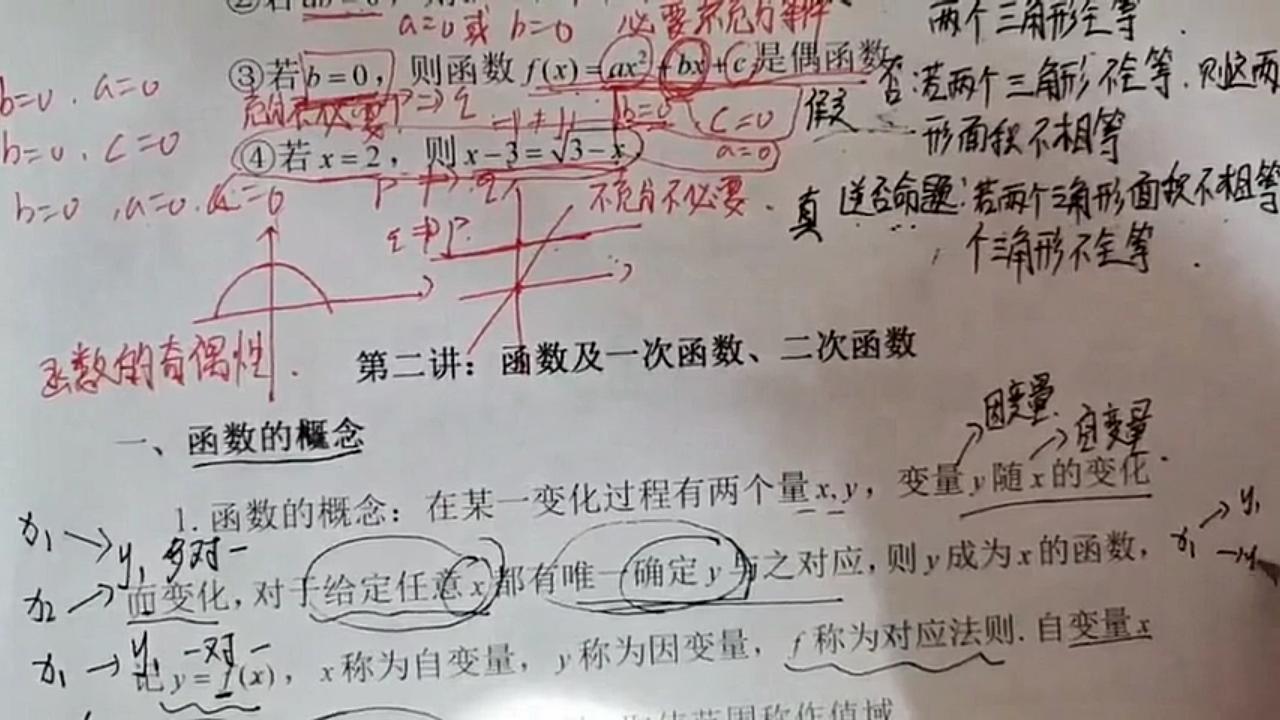 ②若ab=0,
a=0或 b=0 必要不充分条件
两个三角形全等.
③若b=0, 则函数 f(x)=ax²+bx+c是偶函数
b=0,a=0
b=0,c=0
b=0,a=0.
充分不必要 p⇒q
b=0
c=0
a=0
假
否:若两个三角形不全等.则这两
形面积不相等
④若x=2, 则x-3=√3-x
p ⇏ q
q⇏p
不充分不必要.
真 逆否命题:若两个三角形面积不相等
个三角形不全等.
函数的奇偶性.
第二讲:函数及一次函数、二次函数
因变量
自变量.
一、函数的概念
1.函数的概念:在某一变化过程有两个量x,y,变量y随x的变化
x₁ → y₁ 多对一
x₂ →
而变化,对于给定任意x都有唯一确定y与之对应,则y成为x的函数,
x₁ → y₁
x₁ → y₁ 一对一
记y=f(x), x称为自变量, y称为因变量, f称为对应法则.自变量x
取值范围称作值域